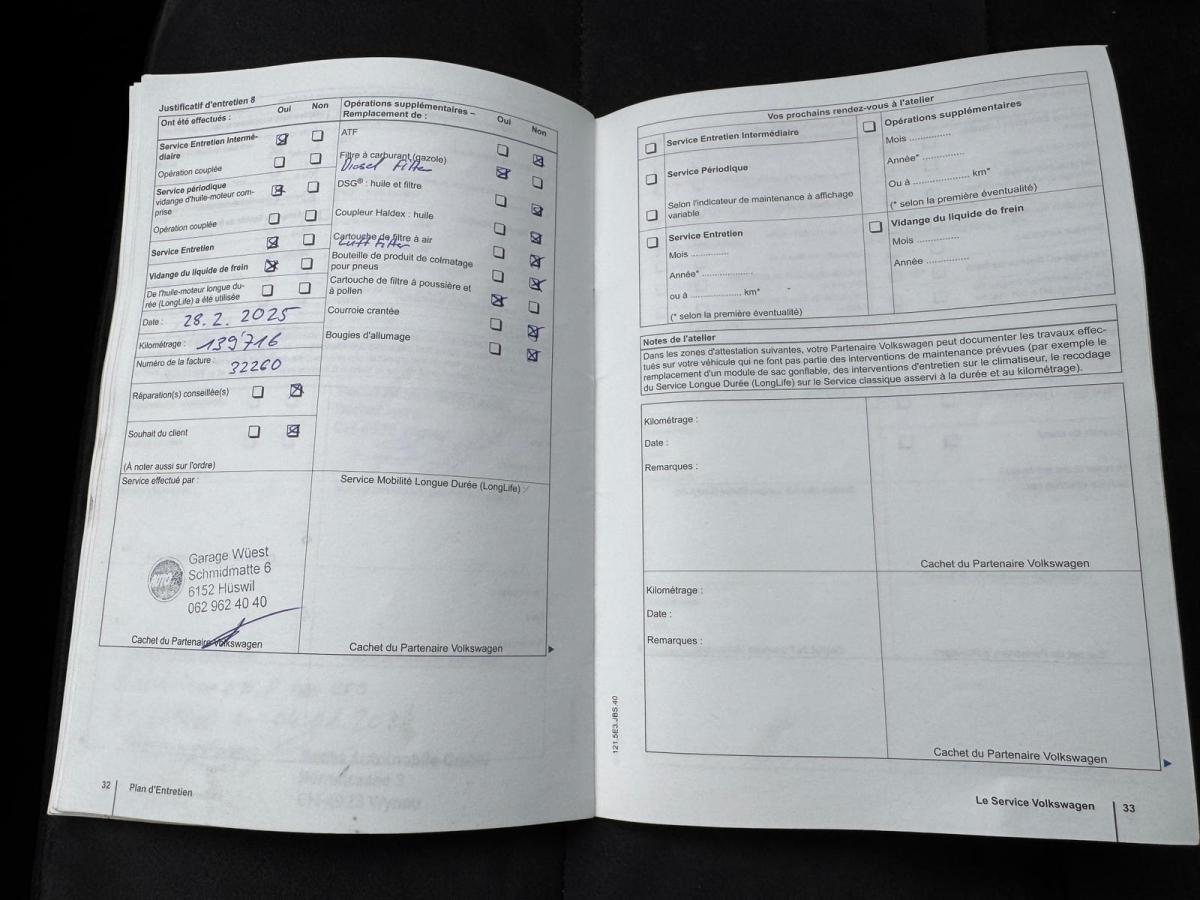 Justificatif d'entretien 8
Ont été effectués :
Oui
Non
Service Entretien Intermé-
diaire
Opération couplée
Service périodique
vidange d'huile-moteur com-
prise
Opération couplée
Service Entretien
Vidange du liquide de frein
De l'huile-moteur longue du-
rée (LongLife) a été utilisée
Date : 28.2.2025
Kilométrage : 139'716
Numéro de la facture : 32260
Réparation(s) conseillée(s)
Souhait du client
(À noter aussi sur l'ordre)
Opérations supplémentaires –
Remplacement de :
Oui
Non
ATF
Filtre à carburant (gazole)
Diesel Filter
DSG® : huile et filtre
Coupleur Haldex : huile
Cartouche de filtre à air
Luft Filter
Bouteille de produit de colmatage
pour pneus
Cartouche de filtre à poussière et
à pollen
Courroie crantée
Bougies d'allumage
Service effectué par :
Garage Wüest
Schmidmatte 6
6152 Hüswil
062 962 40 40
Cachet du Partenaire Volkswagen
Service Mobilité Longue Durée (LongLife)
Cachet du Partenaire Volkswagen
32
Plan d'Entretien
Vos prochains rendez-vous à l'atelier
Service Entretien Intermédiaire
Service Périodique
Selon l'indicateur de maintenance à affichage
variable
Service Entretien
Mois ..............
Année* ...................
ou à ................... km*
(* selon la première éventualité)
Opérations supplémentaires
Mois ..............
Année* ..............
Ou à .................... km*
(* selon la première éventualité)
Vidange du liquide de frein
Mois ..............
Année ..............
Notes de l'atelier
Dans les zones d'attestation suivantes, votre Partenaire Volkswagen peut documenter les travaux effec-
tués sur votre véhicule qui ne font pas partie des interventions de maintenance prévues (par exemple le
remplacement d'un module de sac gonflable, des interventions d'entretien sur le climatiseur, le recodage
du Service Longue Durée (LongLife) sur le Service classique asservi à la durée et au kilométrage).
Kilométrage :
Date :
Remarques :
Cachet du Partenaire Volkswagen
Kilométrage :
Date :
Remarques :
Cachet du Partenaire Volkswagen
121.5E3.JBS.40
Le Service Volkswagen
33